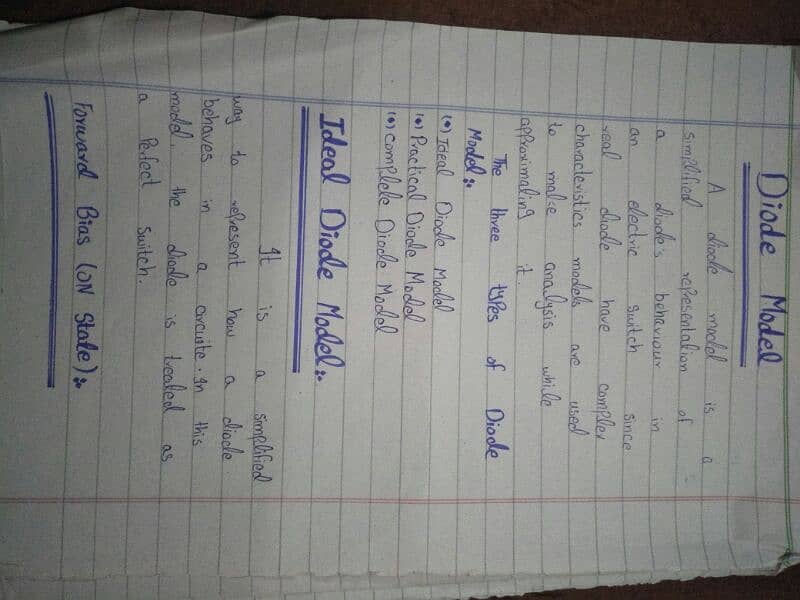 Diode Model
A diode model is a
simplified representation of
a diode's behaviour in
an electric switch since
real diode have complex
characteristics models are used
to make analysis while
approximating it.
The three types of Diode
Model:
(•) Ideal Diode Model
(•) Practical Diode Model
(•) Complete Diode Model
Ideal Diode Model:
It is a simplified
way to represent how a diode
behaves in a circuite. In this
model, the diode is treated as
a Perfect Switch.
Forward Bias (ON State):